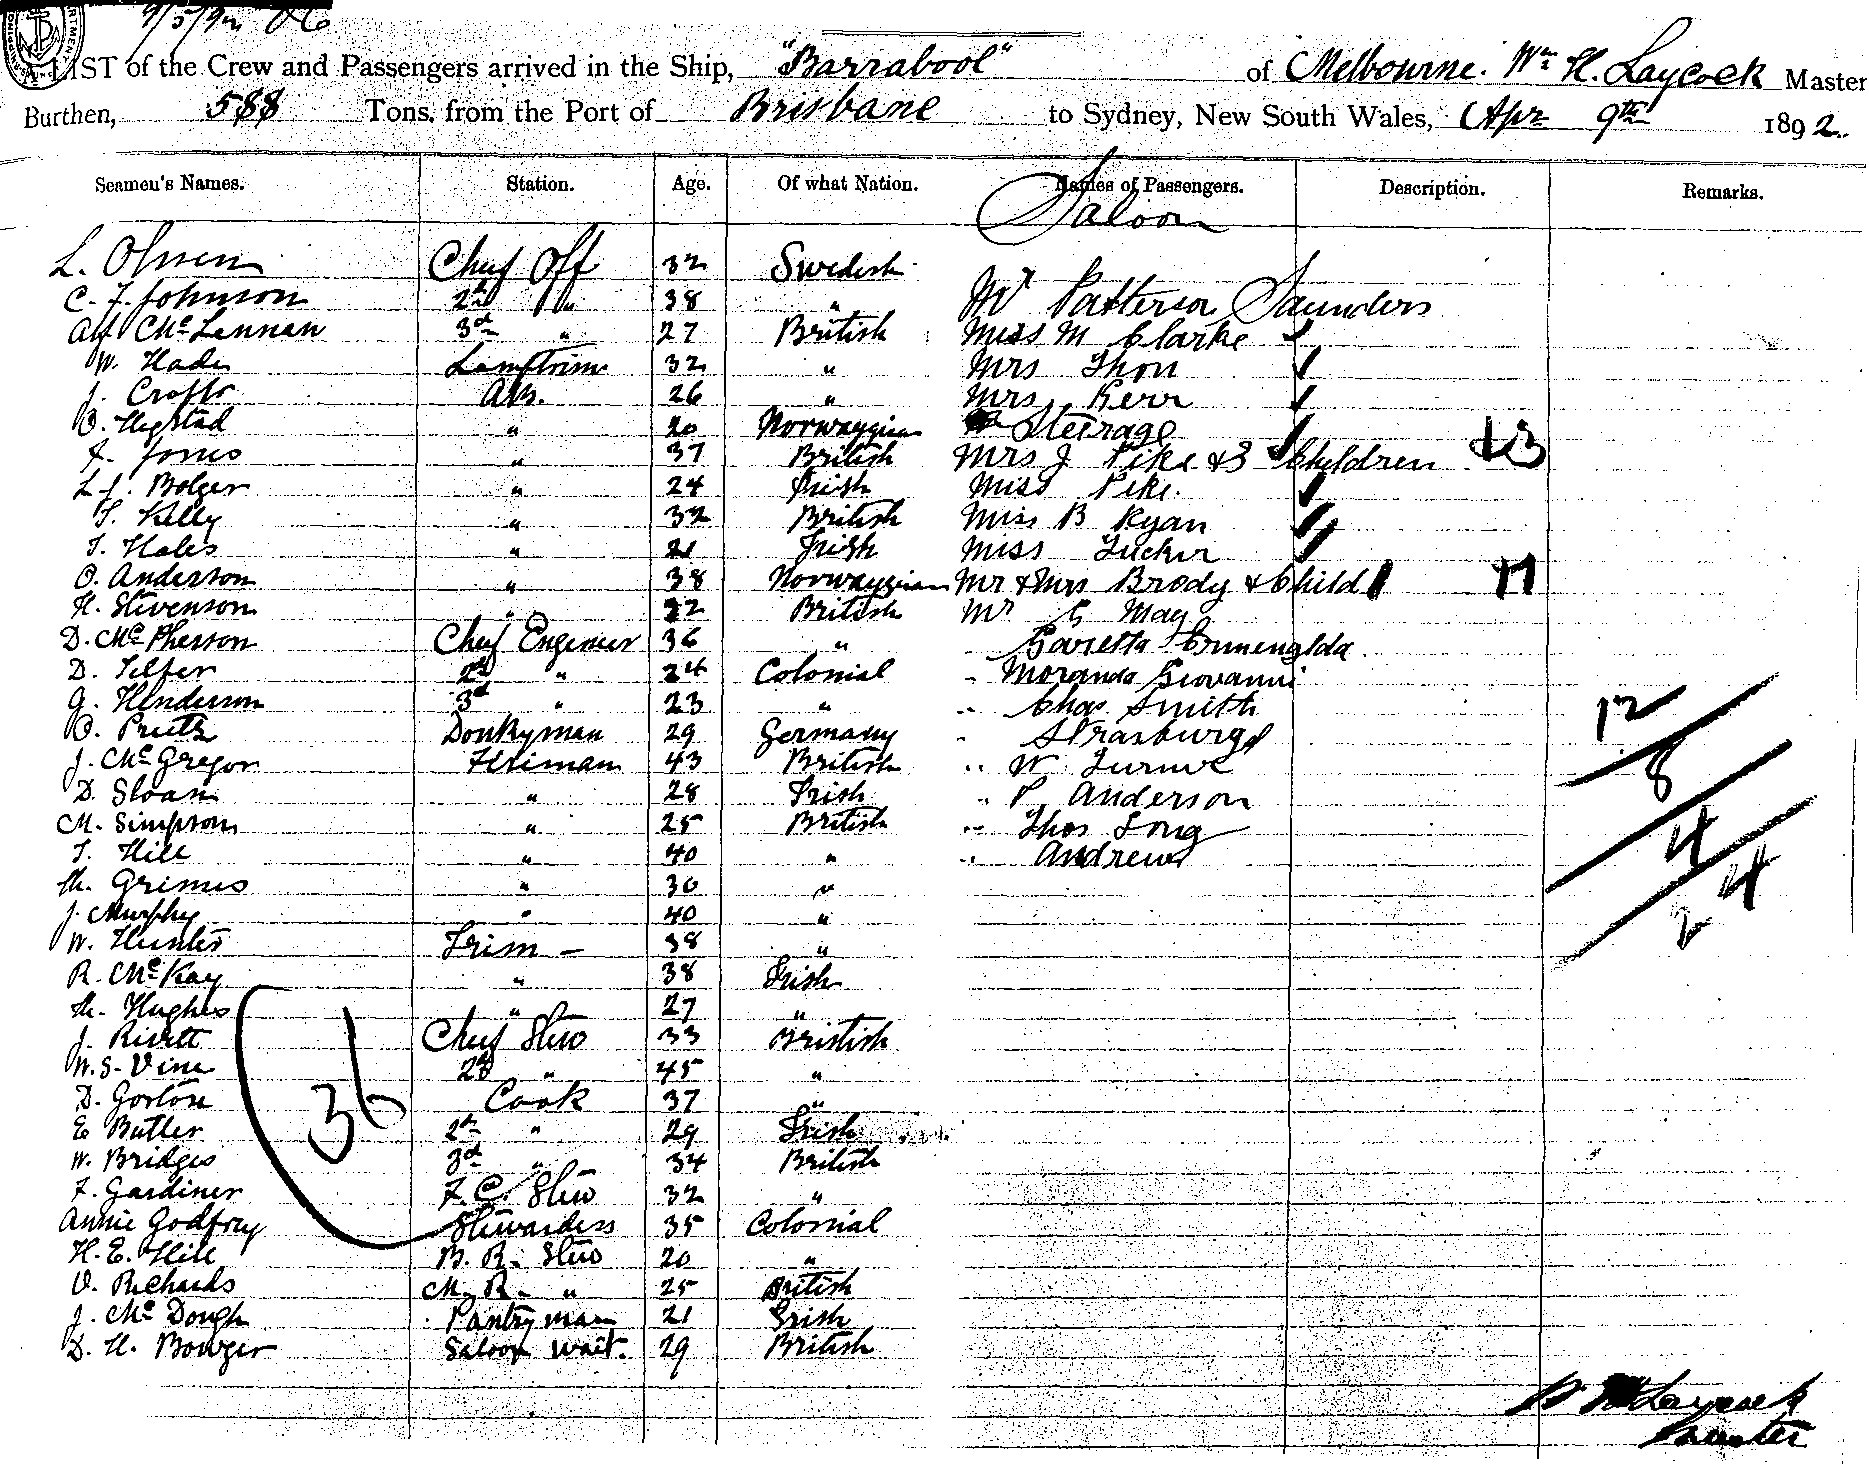 9/5/92
A LIST of the Crew and Passengers arrived in the Ship, "Barrabool" of Melbourne. Wm H. Laycock Master
Burthen, 588 Tons, from the Port of Brisbane to Sydney, New South Wales, Apr 9th 1892.
Seamen's Names. Station. Age. Of what Nation. Names of Passengers. Description. Remarks.
Saloon
L. Olsen Chief Off 32 Swedish
C. F. Johnson 2nd " 38 " Mr Patterson Saunders
Alf McLennan 3rd " 27 British Miss M Clarke
W. Hade Lamptrim 32 " Mrs Thon
J. Crofts AB. 26 " Mrs Kerr
O. Hegstad " 20 Norwaygian Steerage
J. Jones " 37 British Mrs J Pike & 3 Children &3
L. J. Bolger " 24 Irish Miss Pike.
T. Kelly " 32 British Miss B Ryan
T. Hales " 21 Irish Miss Tucker
O. Anderson " 38 Norwaygian Mr & Mrs Brody & Child
H. Stevenson " 22 British Mr G May
D. McPherson Chief Engineer 36 " Garietta Grunenalda
D. Telfer 2nd " 24 Colonial " Morando Giovanni
G. Henderson 3rd " 23 " " Chas Smith
O. Preitz Donkyman 29 Germany " Strasburgh
J. McGregor Fireman 43 British " W Turner
D. Sloan " 28 Irish " P Anderson
M. Simpson " 25 British " Thos Long
T. Hill " 40 " " Andrews
M. Grimes " 30 "
J. Murphy " 40 "
W. Hunter Trim - 38 "
R. McKay " 38 Irish
M. Hughes " 27 "
J. Rivett Chief Stew 33 Bristish
W. S. Vine 2nd " 45 "
D. Gorton Cook 37 "
E Butler 2nd " 29 Irish
W. Bridges 3rd " 34 British
F. Gardiner F. C. Stew 32 "
Annie Godfrey Stewardess 35 Colonial
H. E. Hill B. R. Stew 20 "
V. Richards M. R. " 25 British
J. McDough Pantryman 21 Irish
D. H. Bowger Saloon Wait. 29 British
36
12
8
4
4
2
W H Laycock
Master